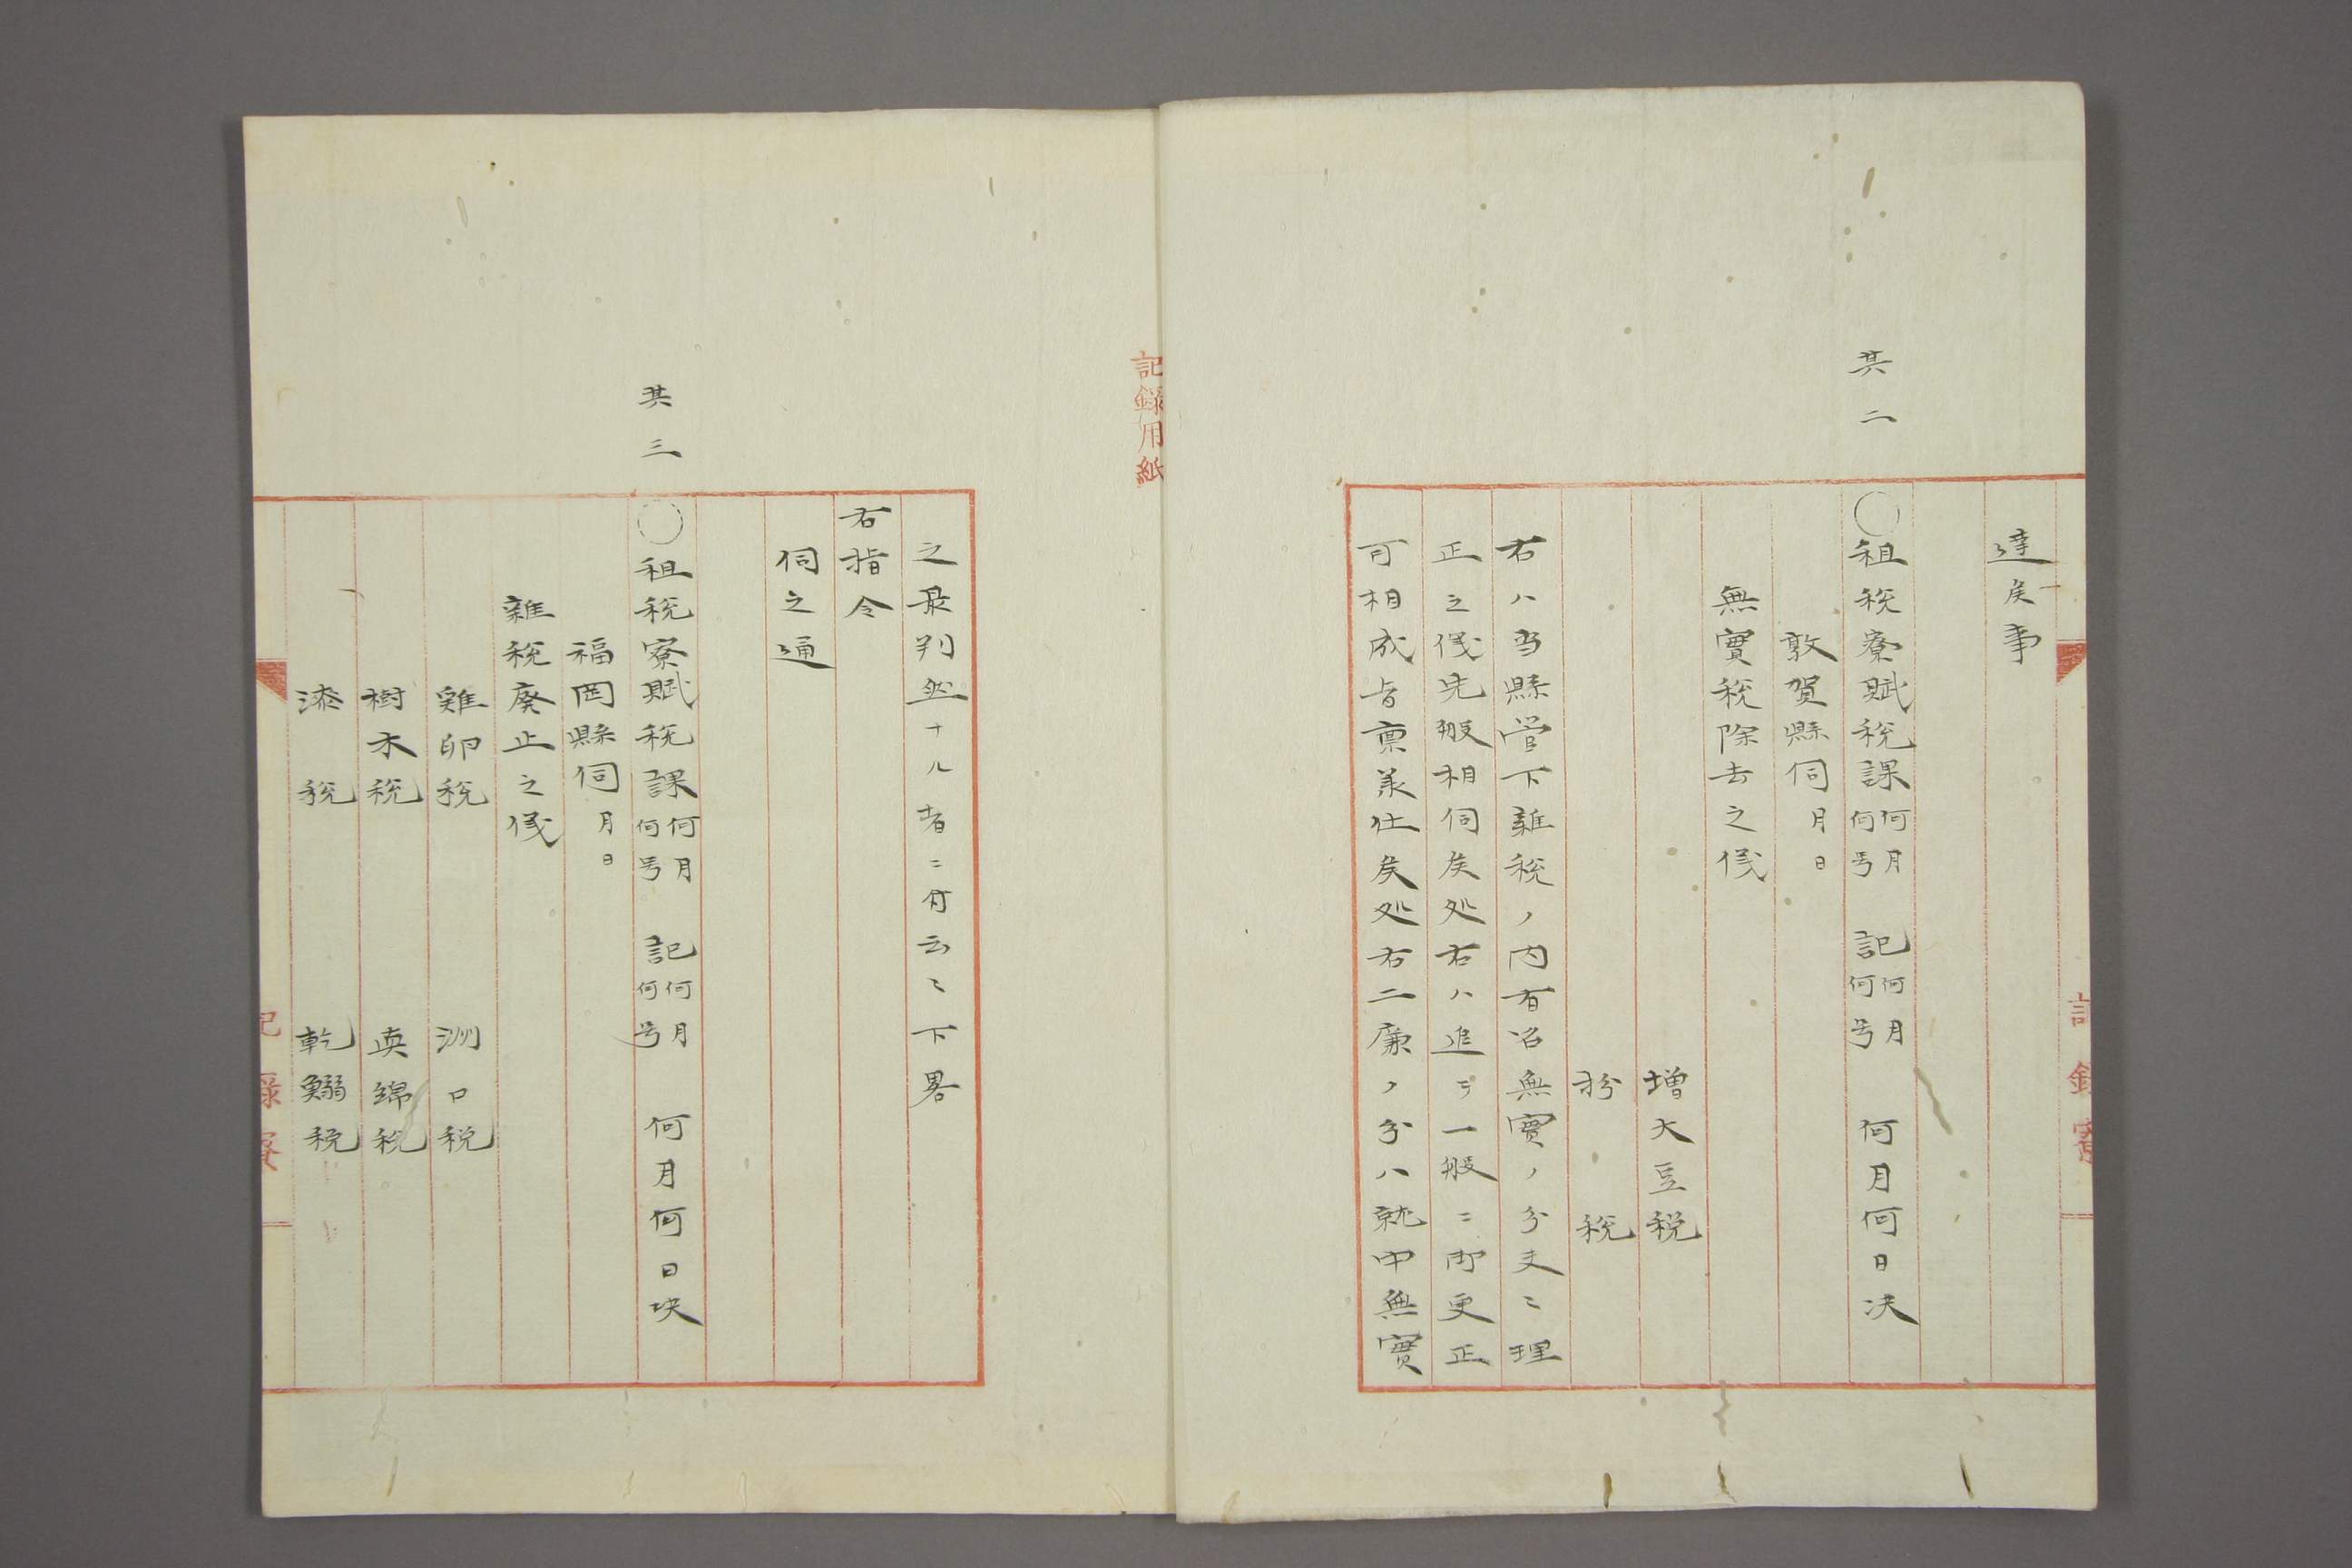 達矦事
其二
○租税寮賦税課何月何号 記何月何号 何月何日决
敦賀縣伺月日
無實税除去之儀
増大豆税
税
右ハ当縣管下雜税ノ内有名無實ノ分夫〻理
正之儀先般相伺矦処右ハ追テ一般ニ御更正
可相成旨稟美仕矦処右二廉ノ分ハ就中無實
記録寮
記録用紙
之最判然十ル者ニ付云〻下畧
右指令
伺之通
其三
○租税寮賦税課何月何号 記何月何号 何月何日决
福岡縣伺月日
雜税廃止之儀
雞卵税 洲口税
樹木税 真綿税
漆税 乾鰯税
記録寮